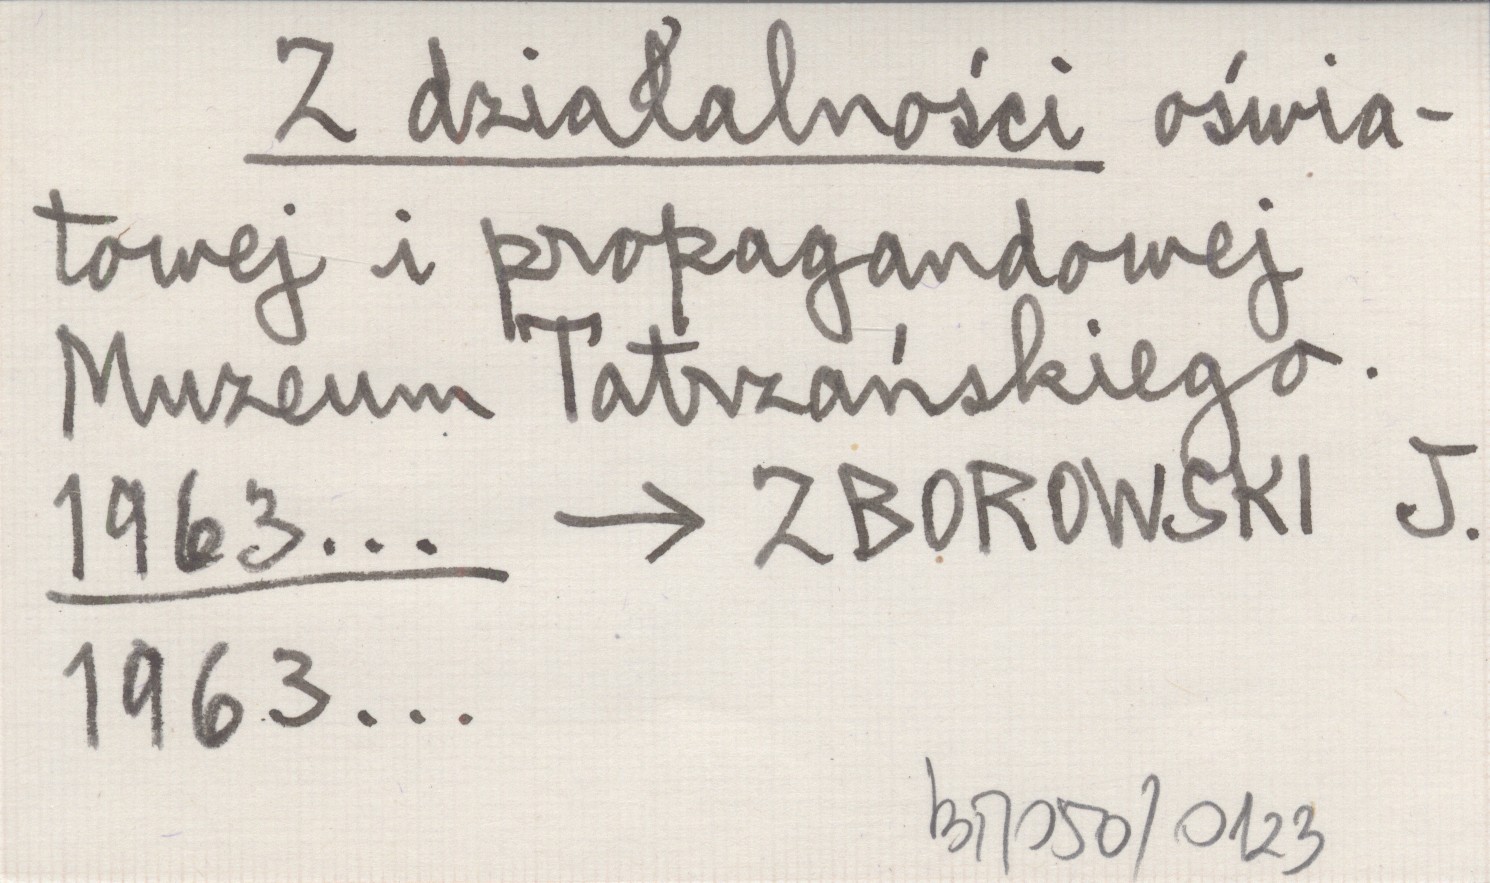 Z działalności oświa-
towej i propagandowej
Muzeum Tatrzańskiego.
1963... → ZBOROWSKI J.
1963...
0123